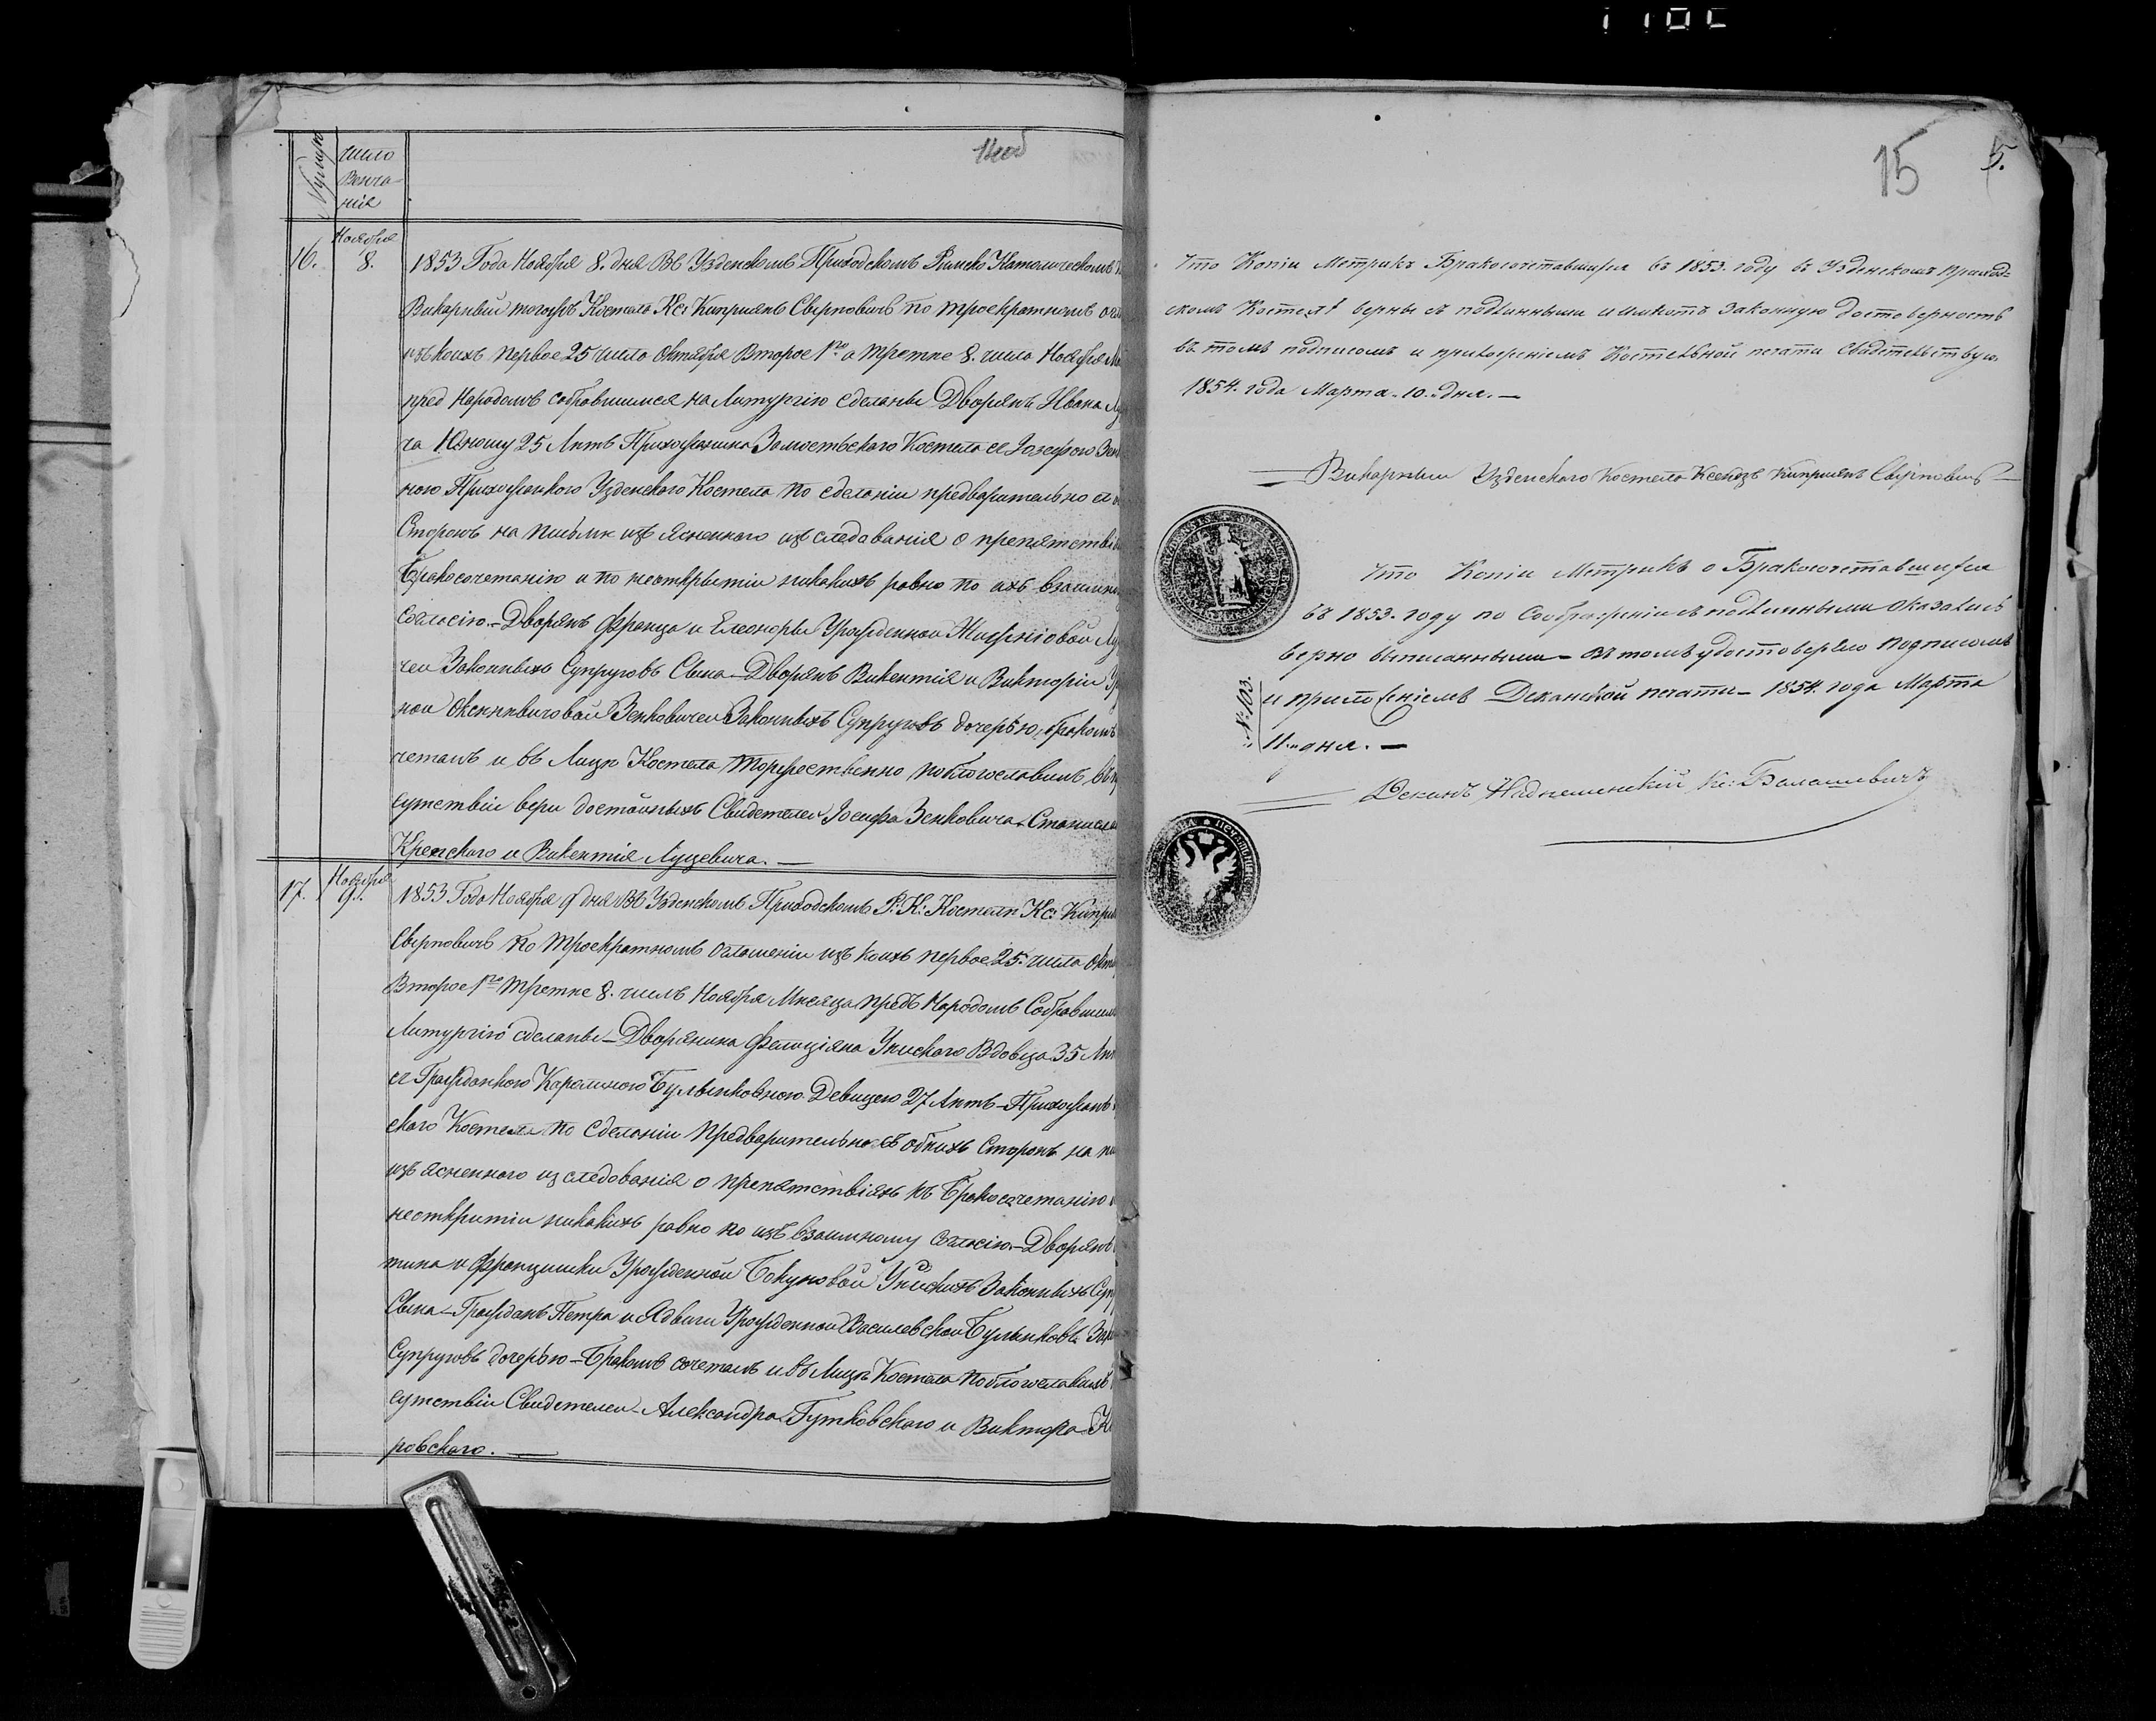 Нумеръ
Число
Венча-
нія
14об
Ноября
16. 8.
1853 Года Ноября 8. дня Въ Узденскомъ Приходскомъ Римско Католическомъ
Викарный тогожъ Костела Кс: Кипріянъ Свирповичъ по троекратномъ
изъ коихъ первое 25 числа Октября Второе 1го а третье 8. числа Ноября
пред Народомъ собравшимся на Литургію сделаны Дворянъ Ивана
ча Юношу 25 Лѣтъ Прихожанина Замостьского Костела съ Іозефою
ною Прихожанкою Узденского Костела по сделаніи предварительно съ
Сторонъ на письмѣ изъясненного изследованія о препятствія
Бракосочетанію и по неоткрытіи никакихъ равно по ихъ взаимно
согласію – Дворянъ Франца и Елеоноры Урожденной
чей Законныхъ Супруговъ Сына – Дворянъ Викентія и Викторіи
ной Зенковичей Законныхъ Супруговъ дочерью, бракомъ
четалъ и въ Лицѣ Костела торжественно поблогославилъ, въ
сутствіи вери достойныхъ Свидетелей Іосифа Зенковича,
и Викентія Луцевича. —
Ноября
17. 9.
1853 Года Ноября 9 дня Въ Узденскомъ Приходскомъ Р: К: Костелѣ Кс:
Свирповичъ по троекратномъ оглашеніи изъ коихъ первое 25. числа
Второе 1го третье 8. числъ Ноября Мѣсяца предъ Народомъ
Литургію сделаны – Дворянина Фелиціяна Вдовца 35
съ Гражданкою Каролиною Бульинковною Девицею 27 Лѣтъ –
ского Костела по сделаніи предварительно съ обѣихъ Сторонъ на
изъясненного изследованія о препятствіяхъ къ Бракосочетанію
неоткритіи никакихъ равно по ихъ взаимному согласію. – Дворянъ
тина и Францишки Урожденной Законныхъ
Сына – Гражданъ Петра и Ядвиги Урожденной Василевской
Супруговъ дочерью – Бракомъ сочеталъ и въ Лицѣ Костела поблогославилъ
сутствіи Свидетелей – Александра Гутковского и Виктора
ровского. —
15 5.
Что Копіи Метрикъ Бракосочетавшихся въ 1853. году въ Узденскомъ Приход-
скомъ Костелѣ верны съ подлинными и имѣютъ законную достоверность
въ томъ подписомъ и приложеніемъ Костельной печати свидетельствую.
1854. года Марта. 10. дня. —
Викарный Узденского Костела Ксендзъ Кипріянъ Свирповичъ
Что Копіи Метрикъ о Бракосочетавшихся
въ 1853. году по Соображеніи съ подлинными оказались
верно выписанными – въ томъ удостоверяю подписомъ
и приложеніемъ Деканской печати – 1854. года Марта
11. дня. —
№ 103.
Деканъ Наднеменскій Кс: Балашевичъ